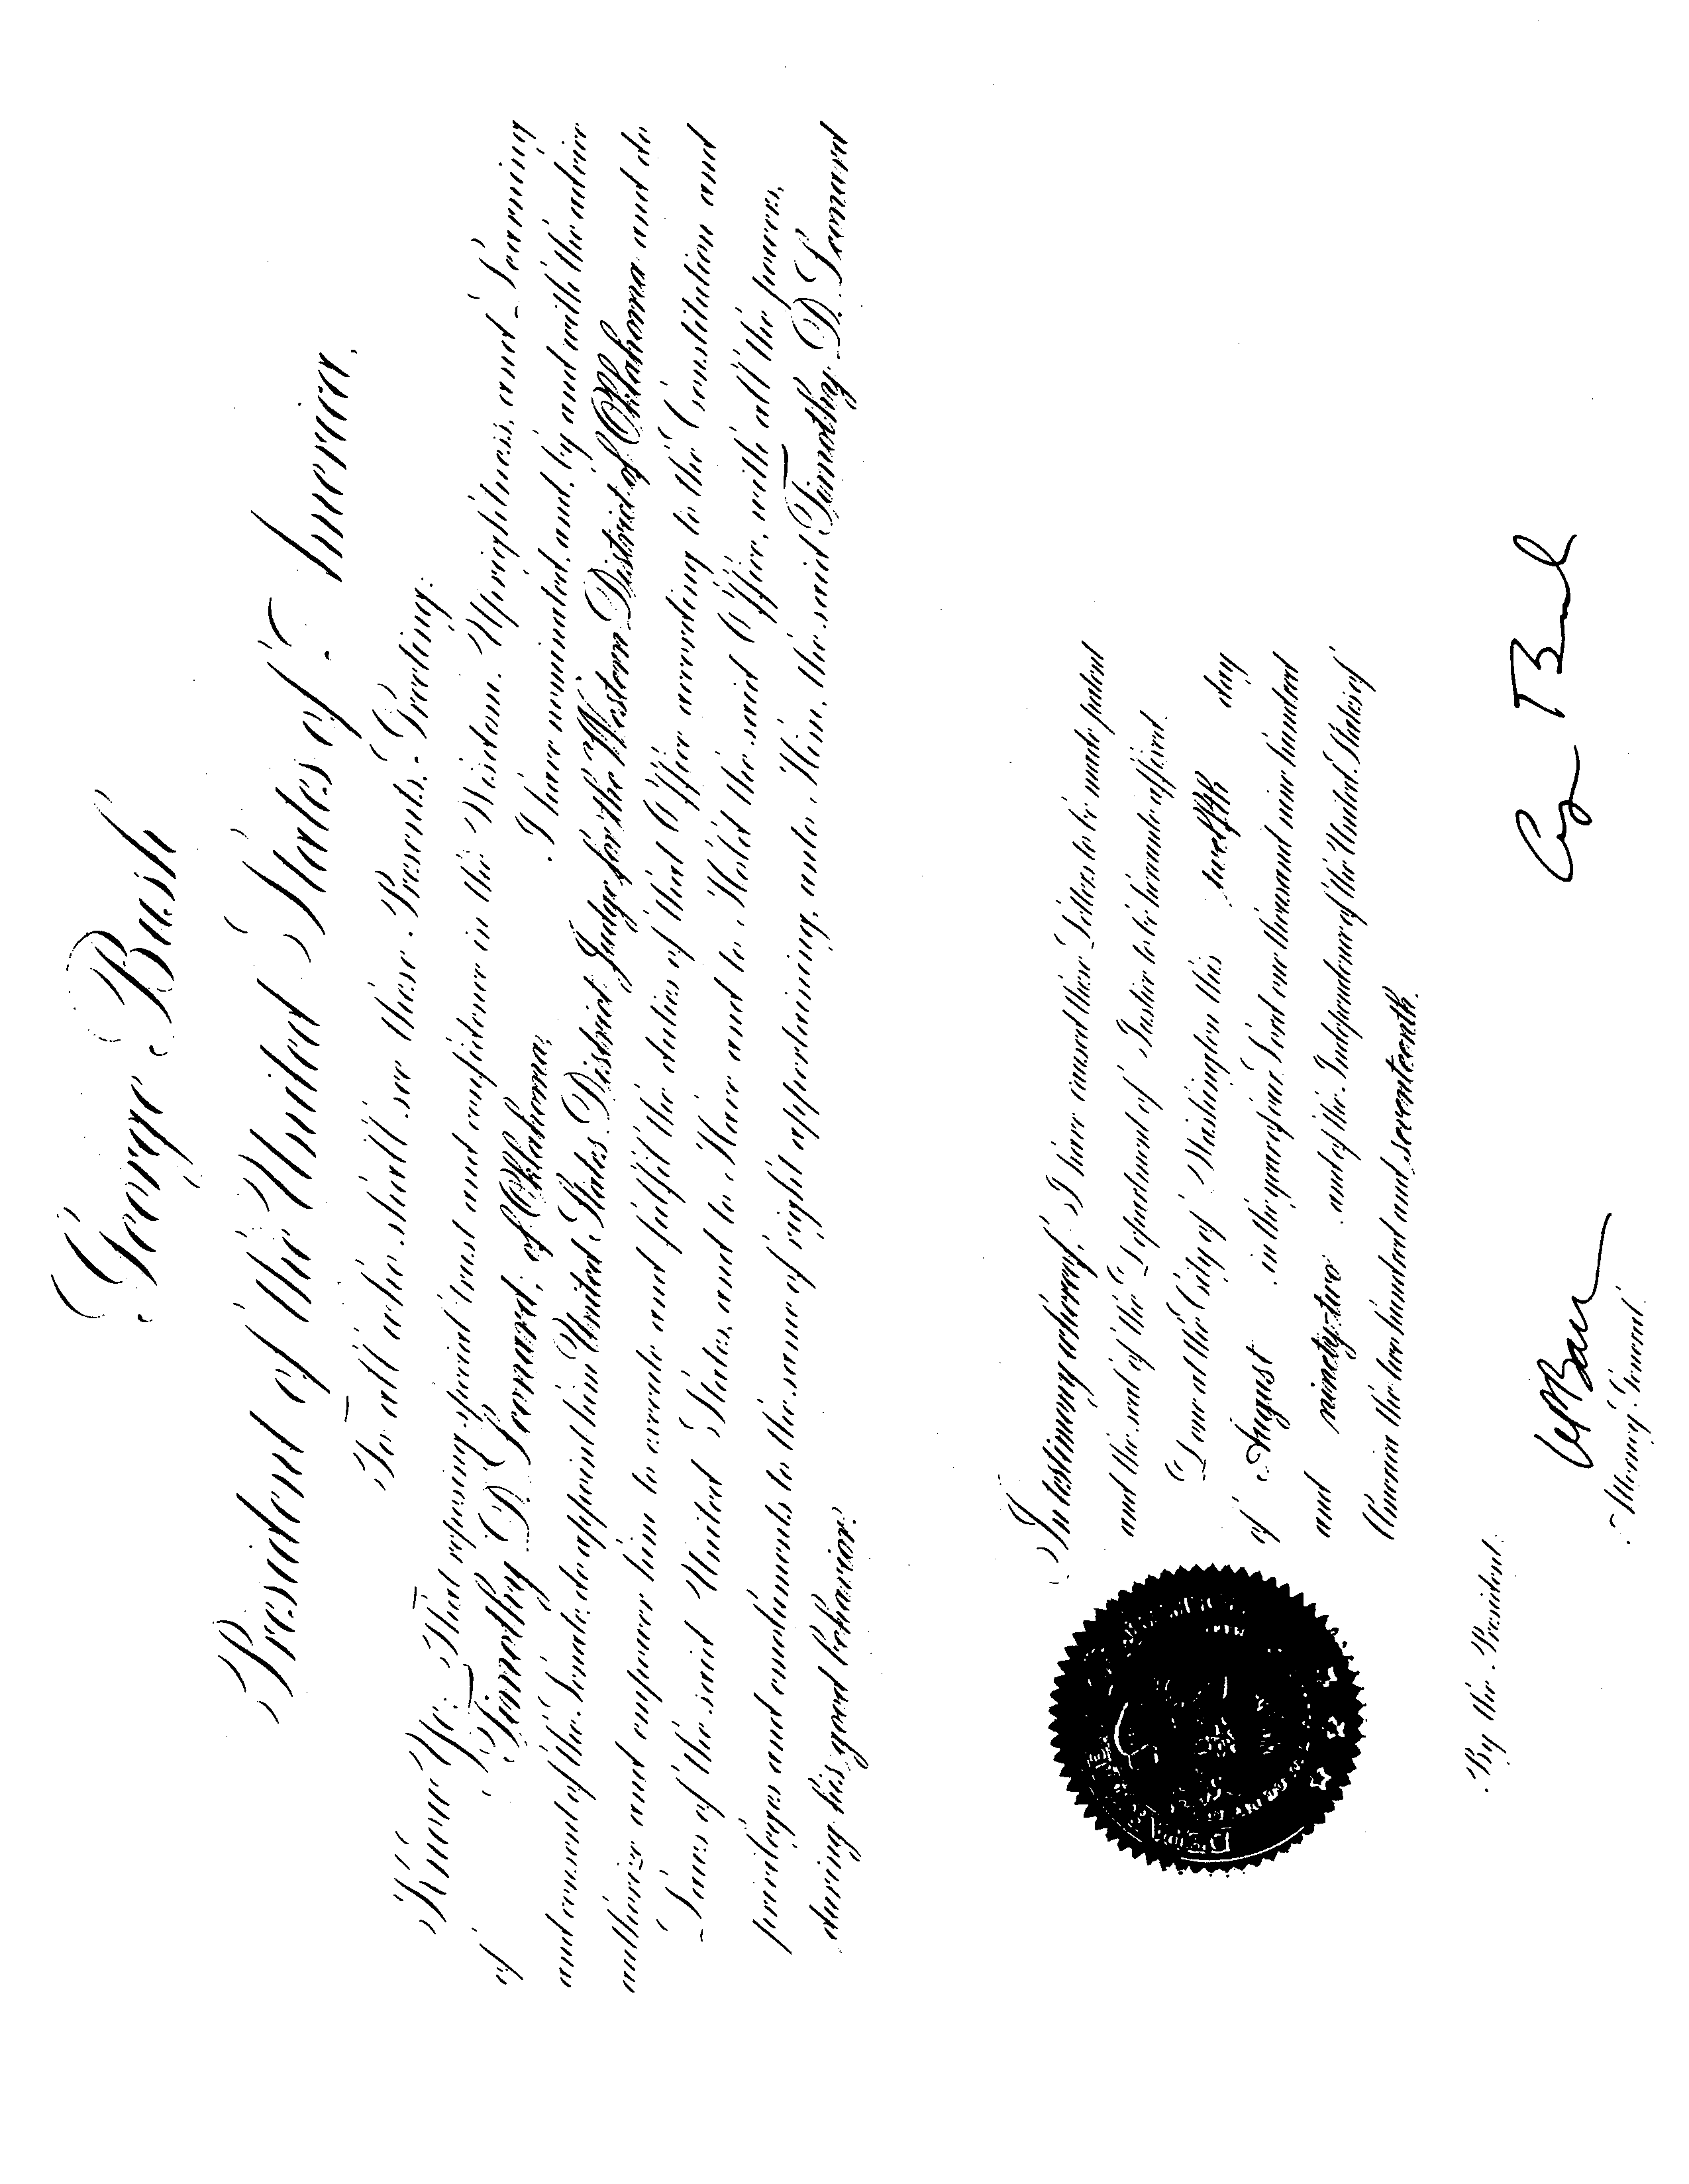 George Bush
President of the United States of America.
To all who shall see these Presents, Greeting:
Know Ye; That reposing special trust and confidence in the Wisdom, Uprightness, and Learning
of Timothy D. Leonard, of Oklahoma, I have nominated, and, by and with the advice
and consent of the Senate, do appoint him United States District Judge for the Western District of Oklahoma and do
authorize and empower him to execute and fulfil the duties of that Office according to the Constitution and
Laws of the said United States, and to Have and to Hold the said Office, with all the powers,
privileges and emoluments to the same of right appertaining, unto Him, the said Timothy D. Leonard
during his good behavior.
In testimony whereof, I have caused these Letters to be made patent
and the seal of the Department of Justice to be hereunto affixed.
Done at the City of Washington this twelfth day
of August in the year of our Lord one thousand nine hundred
and ninety-two and of the Independence of the United States of
America the two hundred and seventeenth.
By the President:
G Bush
WPBarr
Attorney General.